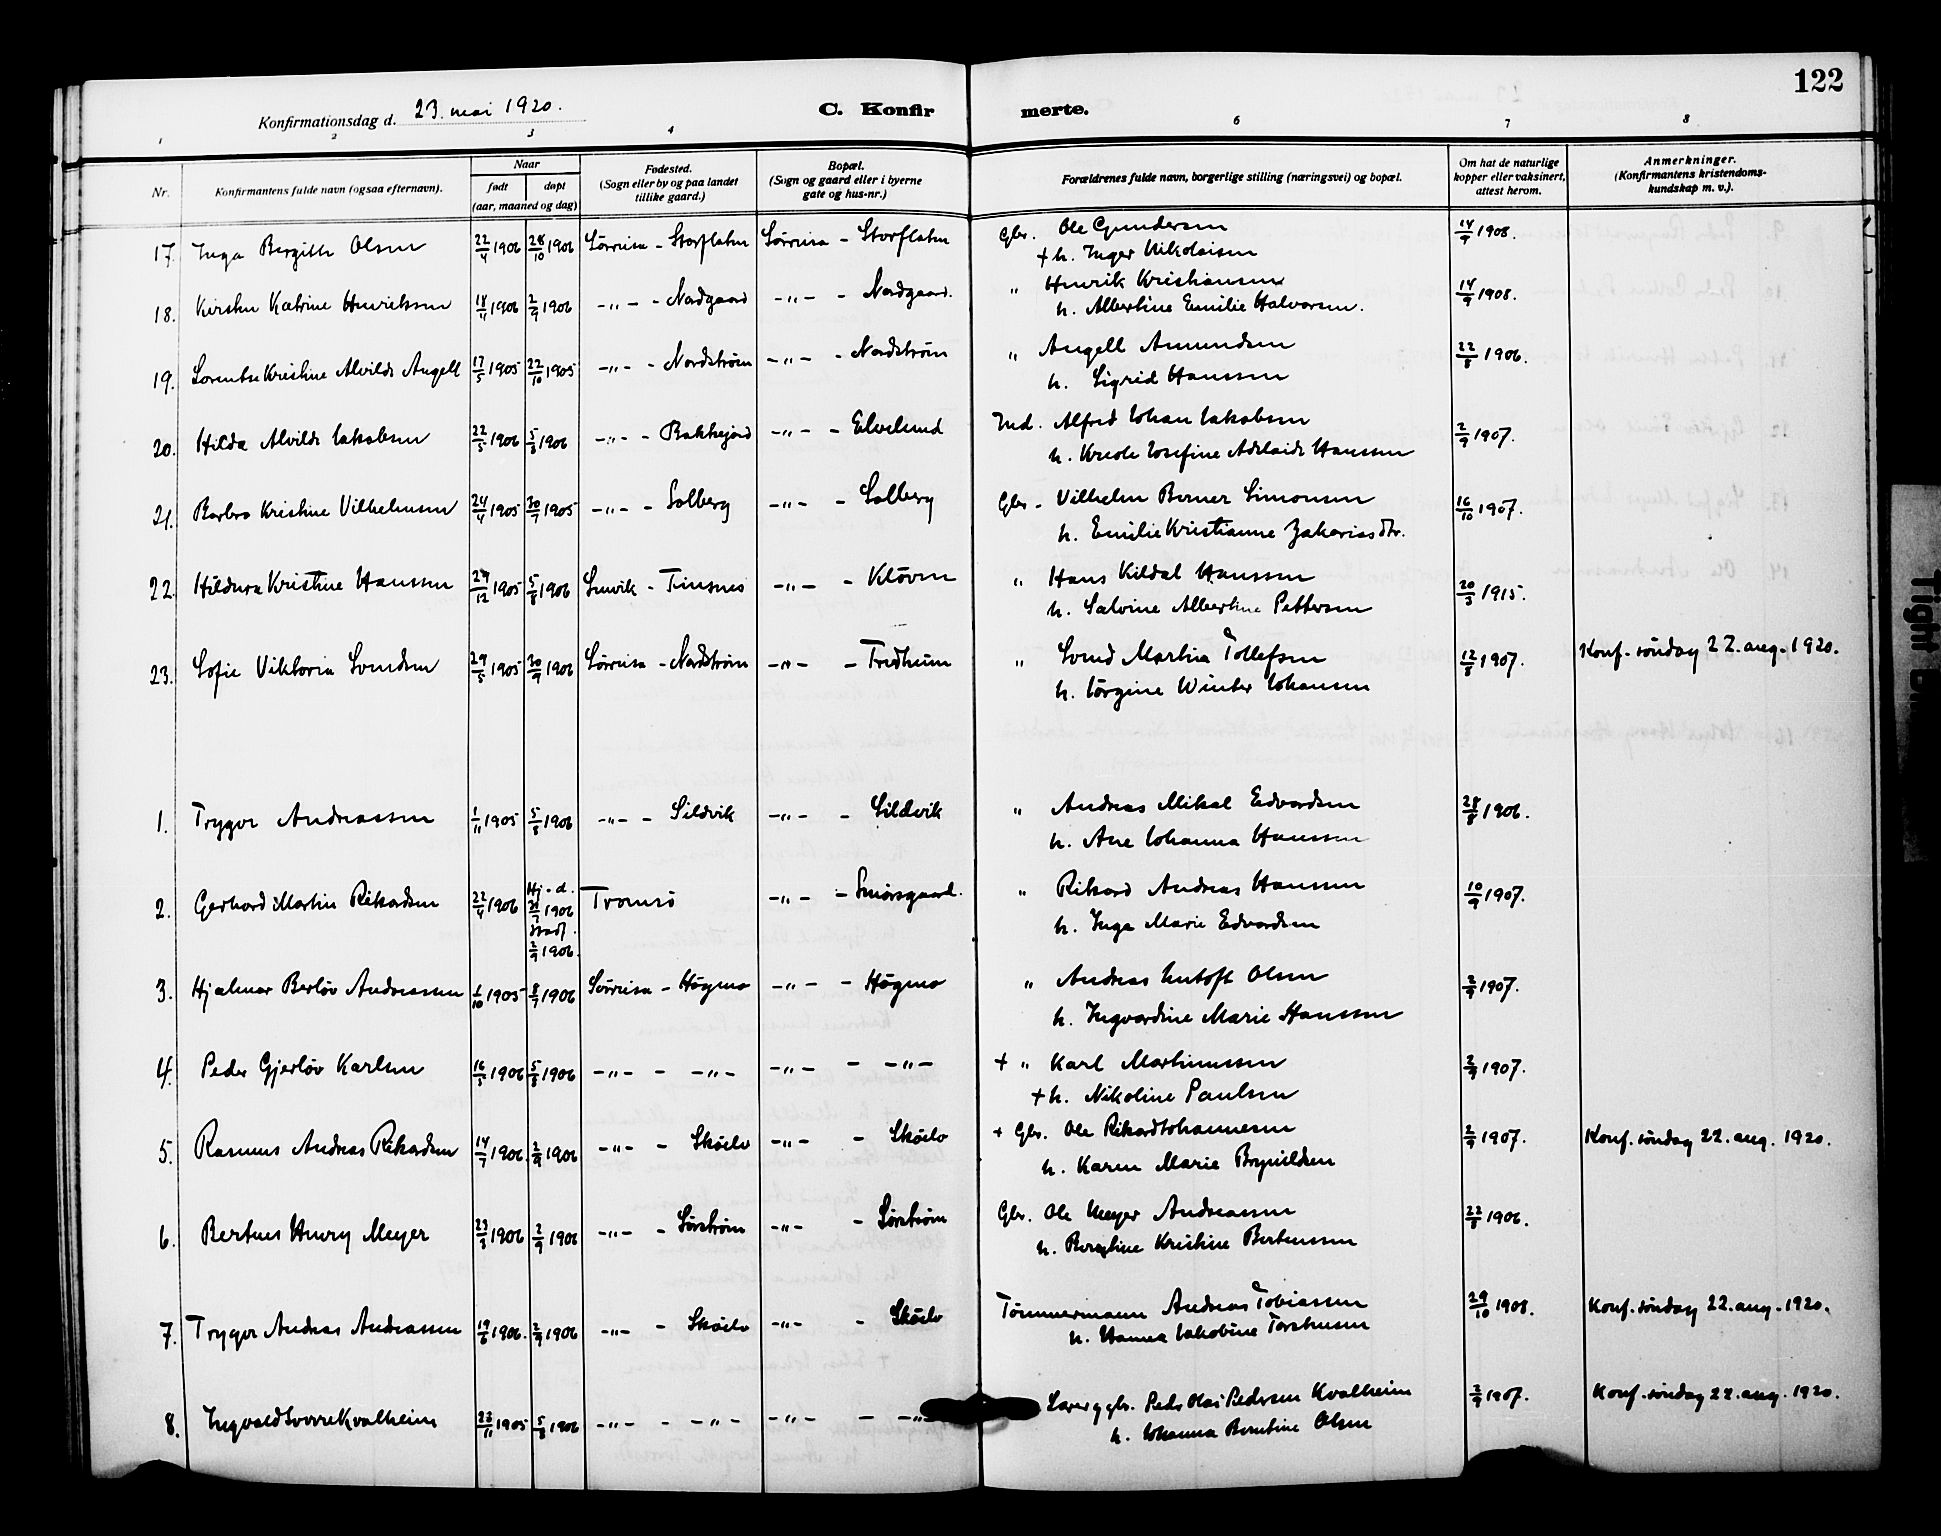 122
Konfirmationsdag d. 23. mai 1920.
C. Konfirmerte.
1 2 3 4 6 7 8
Nr. Konfirmantens fulde navn (ogsaa efternavn). Naar født døpt (aar, maaned og dag) Fødested. (Sogn eller by og paa landet tillike gaard.) Bopæl. (Sogn og gaard eller i byerne gate og hus-nr.) Forældrenes fulde navn, borgerlige stilling (næringsvei) og bopæl. Om hat de naturlige kopper eller vaksinert, attest herom. Anmerkninger. (Konfirmantens kristendoms-kundskap m. v.).
17. Inga Bergitte Olsen 22/4 1906 28/10 1906 Sørreisa - Storflaten Sørreisa - Storflaten Gbr. Ole Gundersen 14/9 1908.
+ h. Inger Nikolaisen
18. Kirsten Katrine Henriksen 18/11 1906 2/9 1906 -"- - Nordgaard -"- - Nordgaard. " Henrik Kristiansen 14/9 1908.
h. Albertine Emilie Halvorsen.
19. Lorentse Kristine Alvilde Angell 17/5 1905 22/10 1905 -"- - Nordstrøm -"- - Nordstrøm " Angell Amundsen 22/8 1906.
h. Sigrid Hanssen
20. Hilda Alvilde Jakobsen 22/5 1906 5/8 1906 -"- - Bakkejord -"- - Elvelund Ind. Alfred Johan Jakobsen 2/9 1907.
h. Kreole Josefine Adelaide Hanssen
21. Barbro Kristine Vilhelmsen 24/4 1905 30/7 1905 -"- - Solberg -"- - Solberg Gbr. - Vilhelm Berner Simonsen 16/10 1907.
h. Emilie Kristianne Zakariasdtr.
22. Hildura Kristine Hanssen 29/12 1905 5/8 1906 Lenvik - Finsnes -"- - Kløven " Hans Kildal Hanssen 20/3 1915.
h. Salvine Albertine Pettersen
23. Sofie Viktoria Svendsen 29/5 1905 30/9 1906 Sørreisa - Nordstrøm -"- - Fredheim " Svend Martin Tollefsen 12/8 1907. Konf. søndag 22. aug. 1920.
h. Jørgine Winter Johansen
1. Trygve Andreassen 1/11 1905 5/8 1906 -"- - Sildvik -"- - Sildvik " Andreas Mikal Edvardsen 28/8 1906.
h. Ane Johanna Hanssen
2. Gerhard Martin Rikardsen 22/4 1906 Hj.-d. 31/7 1906 stadf. 2/9 1906. Tromsø -"- - Smørsgaard. " Rikard Andreas Hanssen 10/9 1907.
h. Inga Marie Edvardsen
3. Hjalmar Berløv Andreassen 1/10 1905 8/7 1906 Sørreisa - Høgmo -"- - Høgmo " Andreas Entoft Olsen 2/9 1907.
h. Ingvardine Marie Hanssen
4. Peder Gjerløv Karlsen 16/5 1906 5/8 1906 -"- - -"- -"- - -"- + " Karl Martinussen 2/9 1907.
+ h. Nikoline Paulsen
5. Rasmus Andreas Rikardsen 14/7 1906. 2/9 1906 -"- - Skøelv -"- - Skøelv + Gbr. Ole Rikard Johannesen 2/9 1907. Konf. søndag 22. aug. 1920.
h. Karen Marie Brynildsen
6. Berteus Henry Meyer 23/3 1906 2/9 1906 -"- - Sørstrøm -"- - Sørstrøm Gbr. Ole Meyer Andreassen 22/8 1906.
h. Bergtine Kristine Berteussen
7. Trygve Andreas Andreassen 19/6 1906. 2/9 1906 -"- - Skøelv -"- - Skøelv Tømmermann Andreas Tobiassen 29/10 1908. Konf. søndag 22. aug. 1920.
h. Hanna Jakobine Torstensen
8. Ingvald Sverre Kvalheim 23/11 1905 5/8 1906 -"- - -"- -"- - -"- Lærer g gbr. Peder Olai Pedersen Kvalheim 2/9 1907. Konf. søndag 22. aug. 1920.
h. Johanna Berntine Olsen